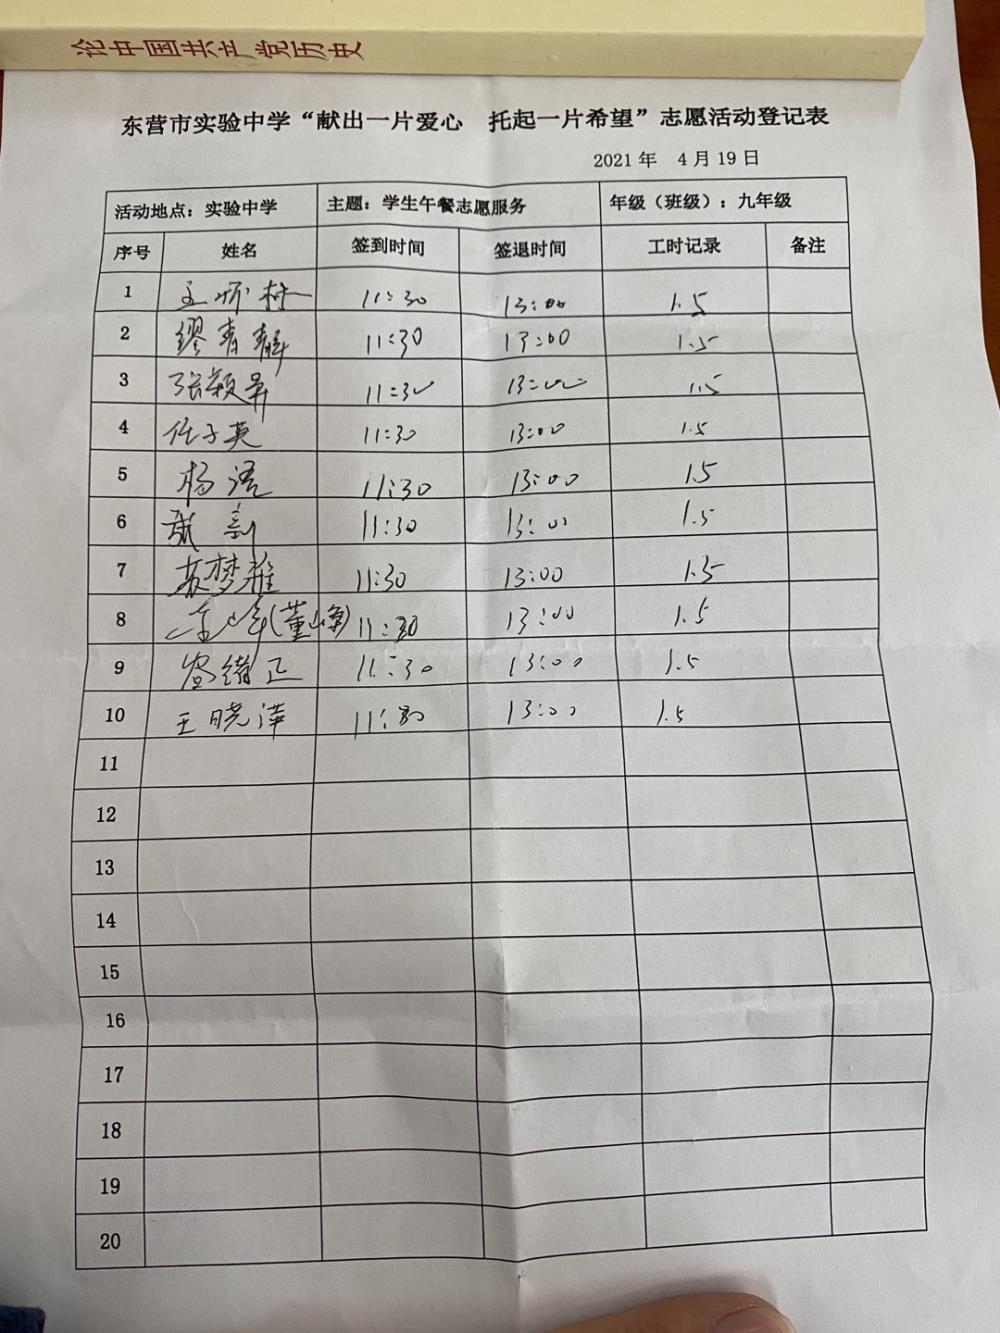 论中国共产党历史
东营市实验中学“献出一片爱心 托起一片希望”志愿活动登记表
2021 年 4 月 19 日
活动地点：实验中学 主题：学生午餐志愿服务 年级（班级）：九年级
序号 姓名 签到时间 签退时间 工时记录 备注
1 11:30 13:00 1.5
2 缪青静 11:30 13:00 1.5
3 张颖异 11:30 13:00 1.5
4 任子英 11:30 13:00 1.5
5 杨洁 11:30 13:00 1.5
6 11:30 13:00 1.5
7 苏梦雅 11:30 13:00 1.5
8 (董峰) 11:30 13:00 1.5
9 11:30 13:00 1.5
10 王晓萍 11:30 13:00 1.5
11
12
13
14
15
16
17
18
19
20